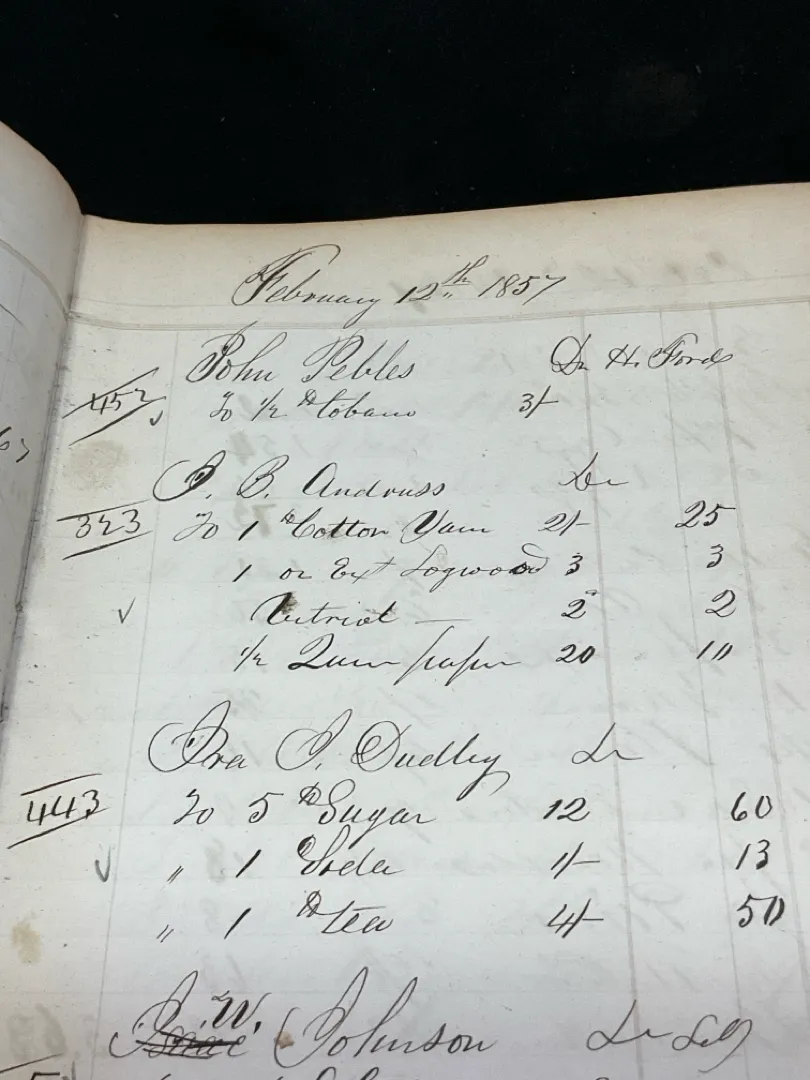 February 12th 1857
John Pebles Dr H. Ford
452 To 1/2 lb tobacco 3/-
J. B. Andruss Dr
323 To 1 lb Cotton Yarn 2/- 25
1 oz Ext Logwood 3 3
Vitriol — 2 2
1/2 Quire paper 20 10
Ira J. Dudley Dr
443 To 5 lb Sugar 12 60
" 1 Soda 1/- 13
" 1 lb tea 4/- 50
J. W. Johnson Dr